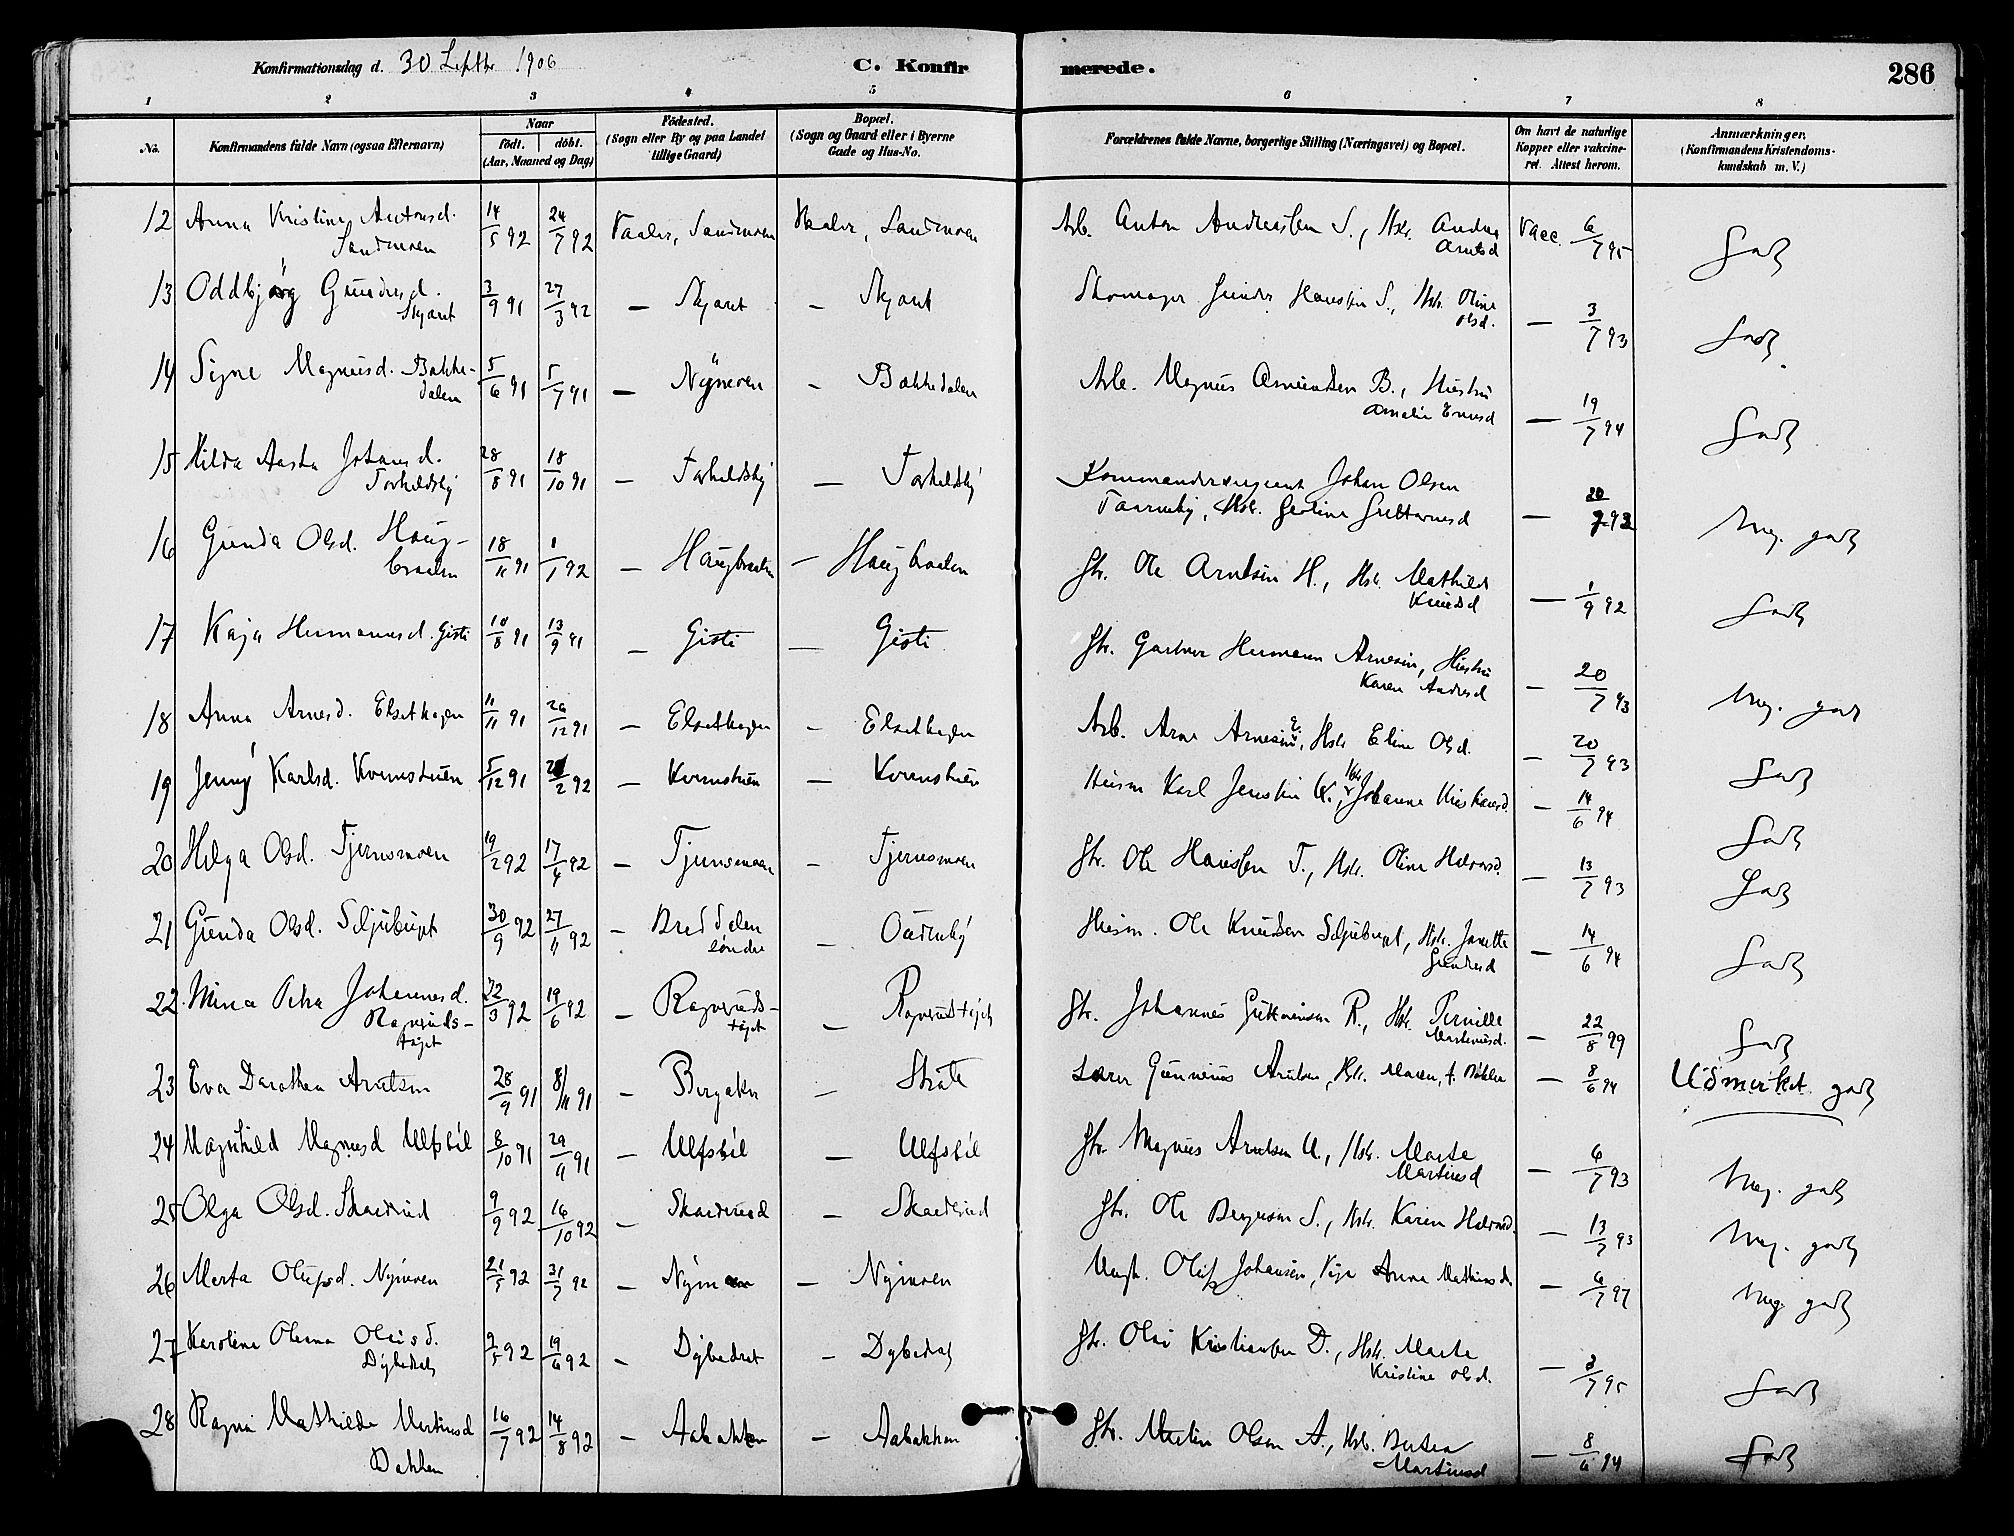 Konfirmationsdag d. 30 Septbr 1906
C. Konfirmerede.
286
1 2 3 4 5 6 7 8
No. Konfirmandens fulde Navn (ogsaa Efternavn) Naar født. døbt. (Aar, Maaned og Dag) Födested. (Sogn eller By og paa Landet tillige Gaard) Bopæl. (Sogn og Gaard eller i Byerne Gade og Hus-No. Forældrenes fulde Navne, borgerlige Stilling (Næringsvei) og Bopæl. Om havt de naturlige Kopper eller vakcineret. Attest herom. Anmærkninger. (Konfirmandens Kristendomskundskab m. V.)
12 Anna Kristine Antonsd. Sandmoen 14/5 92 24/7 92 Vaaler, Sandmoen Vaaler, Sandmoen Arb. Anton Andreassen S., Hstr. Andrea Arntsd Vacc. 6/7 95 Godt
13 Oddbjørg Gundersd. Skjaret 3/9 91 27/3 92 — Skjaret — Skjaret Skomager Gunder Hanssen S., Hstr. Oline Olsd. — 3/7 93 Godt
14 Signe Magnusd. Bakkedalen 5/6 91 5/7 91 — Nymoen — Bakkedalen Arb. Magnus Amundsen B., Hustru Amalie — 19/7 94 Godt
15 Hilda Aasta Johansd. Torkildsby 28/8 91 18/10 91 — Torkildsby — Torkildsby Kommandersergeant Johan Olsen — 20/7 93 Meg. godt
16 Gunda Olsd. Haugbraaten 18/11 91 1/1 92 — Haugbraaten — Haugbraaten Gbr. Ole Arntsen H., Hstr. Mathilde Knudsd — 1/9 92 Godt
17 Kaja Hermannsd. Gisti 10/8 91 13/9 91 — Gisti — Gisti Gbr. Gartner Hermann Arnesen, Hustru Karen Andersd — 20/7 93 Meg. godt
18 Anna Arnesd. Elsethagen 11/11 91 26/12 91 — Elsethagen — Elsethagen Arb. Arne Arnesen E., Hstr Eline Olsd. — 20/7 93 Godt
19 Jenny Karlsd. Kvernstuen 5/12 91 2/2 92 — Kvernstuen — Kvernstuen Husm Karl Jensen K., Hstr Johanne Kristiansd. — 14/6 94 Godt
20 Helga Olsd. Tjernsmoen 19/2 92 17/4 92 — Tjernsmoen — Tjernsmoen Gbr. Ole Hanssen T., Hstr. Oline Halvorsd. — 13/7 93 Godt
21 Gunda Olsd. Seljubuget 30/9 92 27/11 92 — Breddalen søndre — Oudenby Husm. Ole Knudsen Seljubuget, Hstr. Janette Gundersd — 14/6 94 Godt
22 Mina Petra Johannesd. Ragnrudstøjet 22/3 92 19/6 92 — Ragnrudstøjet — Ragnrudstøjet Gbr. Johannes Guttormsen R., Hstr. Pernille — 22/8 99 Godt
23 Eva Dorothea Arntsen 28/9 91 8/11 91 — Bergaker — Strate Lærer Gunnerius Arntsen, Hstr. Maren, f. Bakken — 8/6 94 Udmerket godt
24 Magnhild Magnusd Ulfsbøl 8/10 91 29/11 91 — Ulfsbøl — Ulfsbøl Gbr. Magnus Arntsen U., Hstr. Marte Martinsd — 6/7 93 Meg. godt
25 Olga Olsd. Skaderud 9/9 92 16/10 92 — Skaderud — Skaderud Gbr. Ole Bergersen S., Hstr. Karen Halvorsd. — 13/7 93 Meg. godt
26 Marta Olufsd. Nymoen 21/5 92 31/7 92 — Nymoen — Nymoen Ungk. Oluf Johansen, Pige Anna Mathiasd. — 6/7 97 Meg godt
27 Karoline Olama Olausd. Dybedal 2/5 92 19/6 92 — Dybedal — Dybedal Gbr. Olai Kristiansen D., Hstr. Marte Kristine Olsd. — 3/7 95 Godt
28 Ragna Mathilde Martinsd Dahlen 16/7 92 14/8 92 — Aabakken — Aabakken Gbr. Martin Olsen A., Hstr. Berthea Martinusd — 8/6 94 Godt